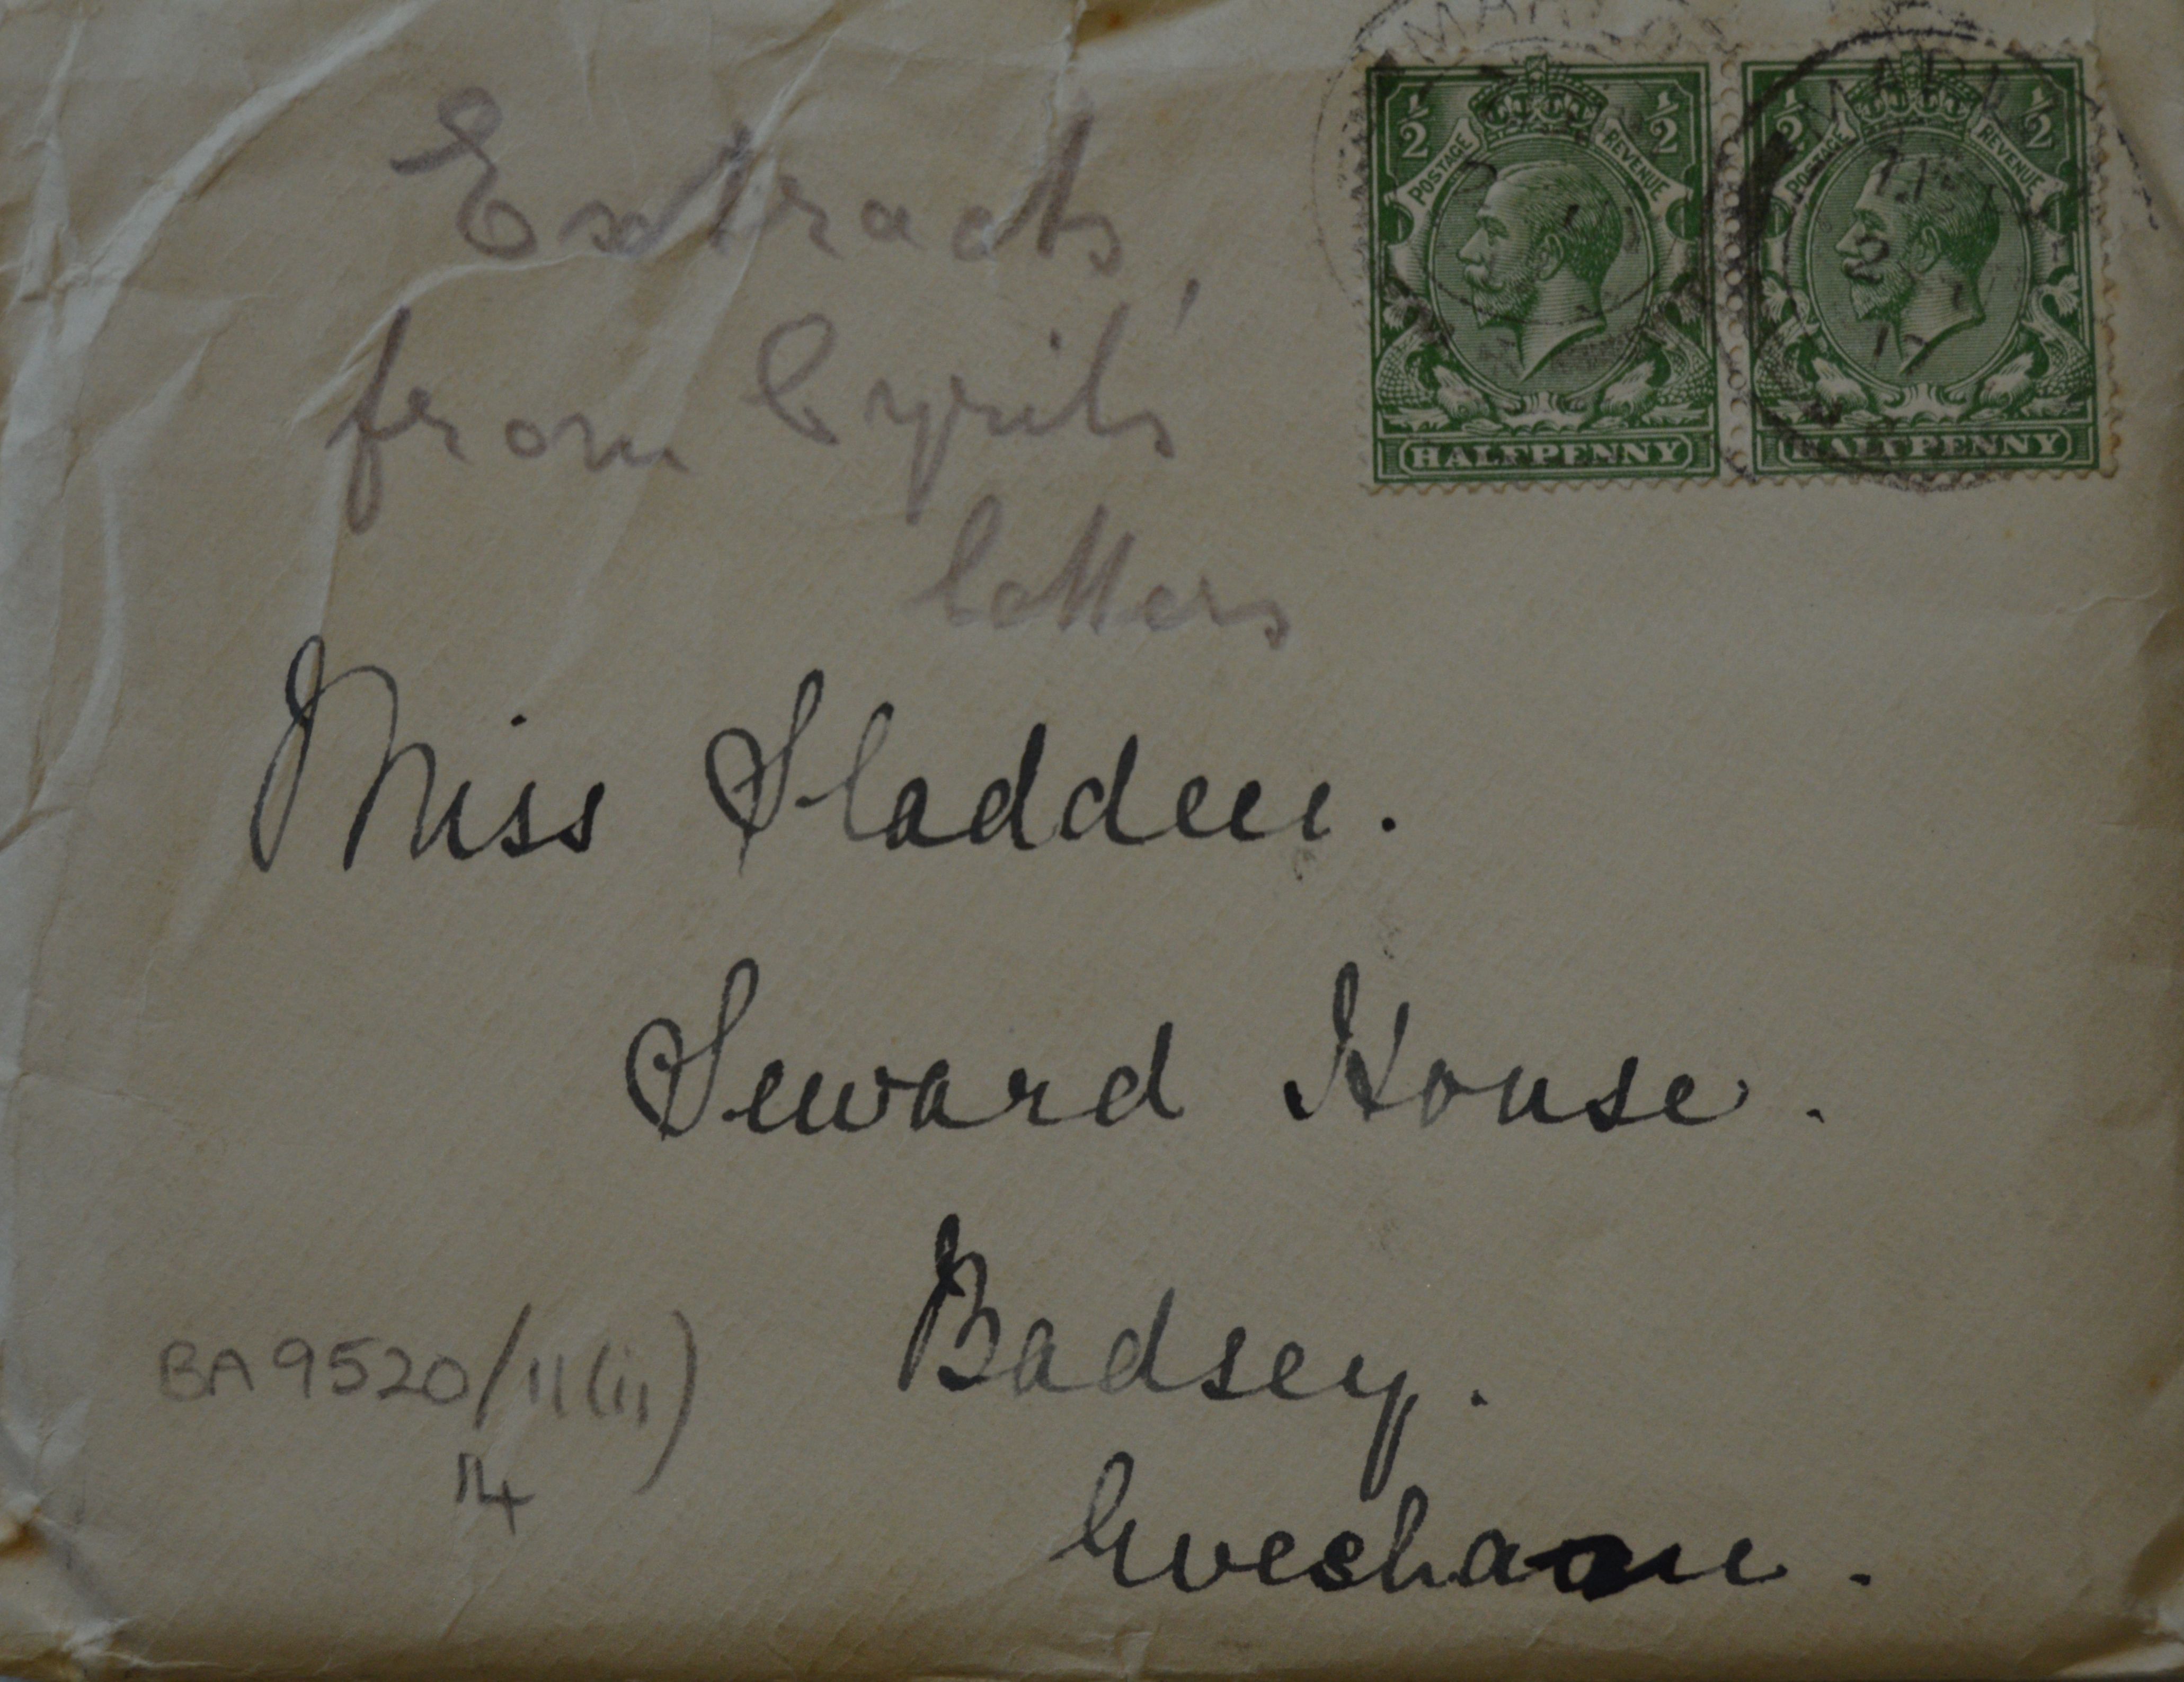 Extracts
from Cyril's
letters
½ ½
POSTAGE REVENUE
HALFPENNY
½ ½
POSTAGE REVENUE
HALFPENNY
Miss Sladden.
Seward House.
Badsey.
Evesham.
BA9520/11(ii)